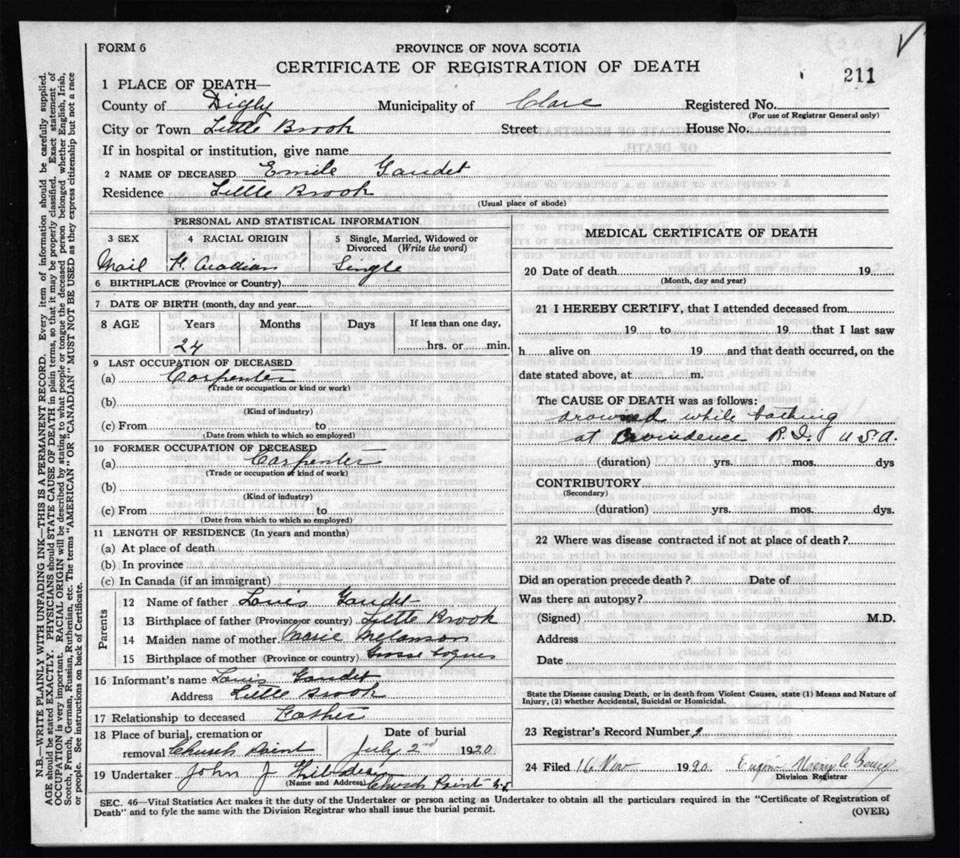 FORM 6
PROVINCE OF NOVA SCOTIA
CERTIFICATE OF REGISTRATION OF DEATH
211
1 PLACE OF DEATH—
County of Digby Municipality of Clare Registered No.
(For use of Registrar General only)
City or Town Little Brook Street House No.
If in hospital or institution, give name
2 NAME OF DECEASED Emile Gaudet
Residence Little Brook
(Usual place of abode)
PERSONAL AND STATISTICAL INFORMATION
3 SEX 4 RACIAL ORIGIN 5 Single, Married, Widowed or Divorced (Write the word)
Mail F. Acadian Single
6 BIRTHPLACE (Province or Country)
7 DATE OF BIRTH (month, day and year
8 AGE Years Months Days If less than one day,
24 hrs. or min.
9 LAST OCCUPATION OF DECEASED
(a) Carpenter
(Trade or occupation or kind or work)
(b)
(Kind of industry)
(c) From to
(Date from which to which so employed)
10 FORMER OCCUPATION OF DECEASED
(a) Carpenter
(Trade or occupation or kind of work)
(b)
(Kind of industry)
(c) From to
(Date from which to which so employed)
11 LENGTH OF RESIDENCE (In years and months)
(a) At place of death
(b) In province
(c) In Canada (if an immigrant)
Parents
12 Name of father Louis Gaudet
13 Birthplace of father (Province or country) Little Brook
14 Maiden name of mother Marie Melanson
15 Birthplace of mother (Province or country) Grosse Coques
16 Informant's name Louis Gaudet
Address Little Brook
17 Relationship to deceased Father
18 Place of burial, cremation or removal Church Point Date of burial July 2nd 1920
19 Undertaker John J
(Name and Address) Church Point N.S
MEDICAL CERTIFICATE OF DEATH
20 Date of death 19
(Month, day and year)
21 I HEREBY CERTIFY, that I attended deceased from
19 to 19 that I last saw
h alive on 19 and that death occurred, on the
date stated above, at m.
The CAUSE OF DEATH was as follows:
drowned while bathing
at Providence R.I. U.S.A.
(duration) yrs. mos. dys
CONTRIBUTORY
(Secondary)
(duration) yrs. mos. dys.
22 Where was disease contracted if not at place of death?
Did an operation precede death? Date of
Was there an autopsy?
(Signed) M.D.
Address
Date
State the Disease causing Death, or in death from Violent Causes, state (1) Means and Nature of
Injury, (2) whether Accidental, Suicidal or Homicidal.
23 Registrar's Record Number 2
24 Filed 16 Nov 1920
Division Registrar
SEC. 46—Vital Statistics Act makes it the duty of the Undertaker or person acting as Undertaker to obtain all the particulars required in the "Certificate of Registration of
Death" and to fyle the same with the Division Registrar who shall issue the burial permit. (OVER)
N.B.—WRITE PLAINLY WITH UNFADING INK—THIS IS A PERMANENT RECORD. Every item of information should be carefully supplied.
AGE should be stated EXACTLY. PHYSICIANS should STATE CAUSE OF DEATH in plain terms, so that it may be properly classified. Exact statement of
OCCUPATION is very important. RACIAL ORIGIN will be described by stating to what people or tongue the deceased person belonged whether English, Irish,
Scotch, French, German, Russian, Ruthenian, etc. The terms "AMERICAN" OR "CANADIAN" MUST NOT BE USED as they express citizenship but not a race
or people. See instructions on back of Certificate.